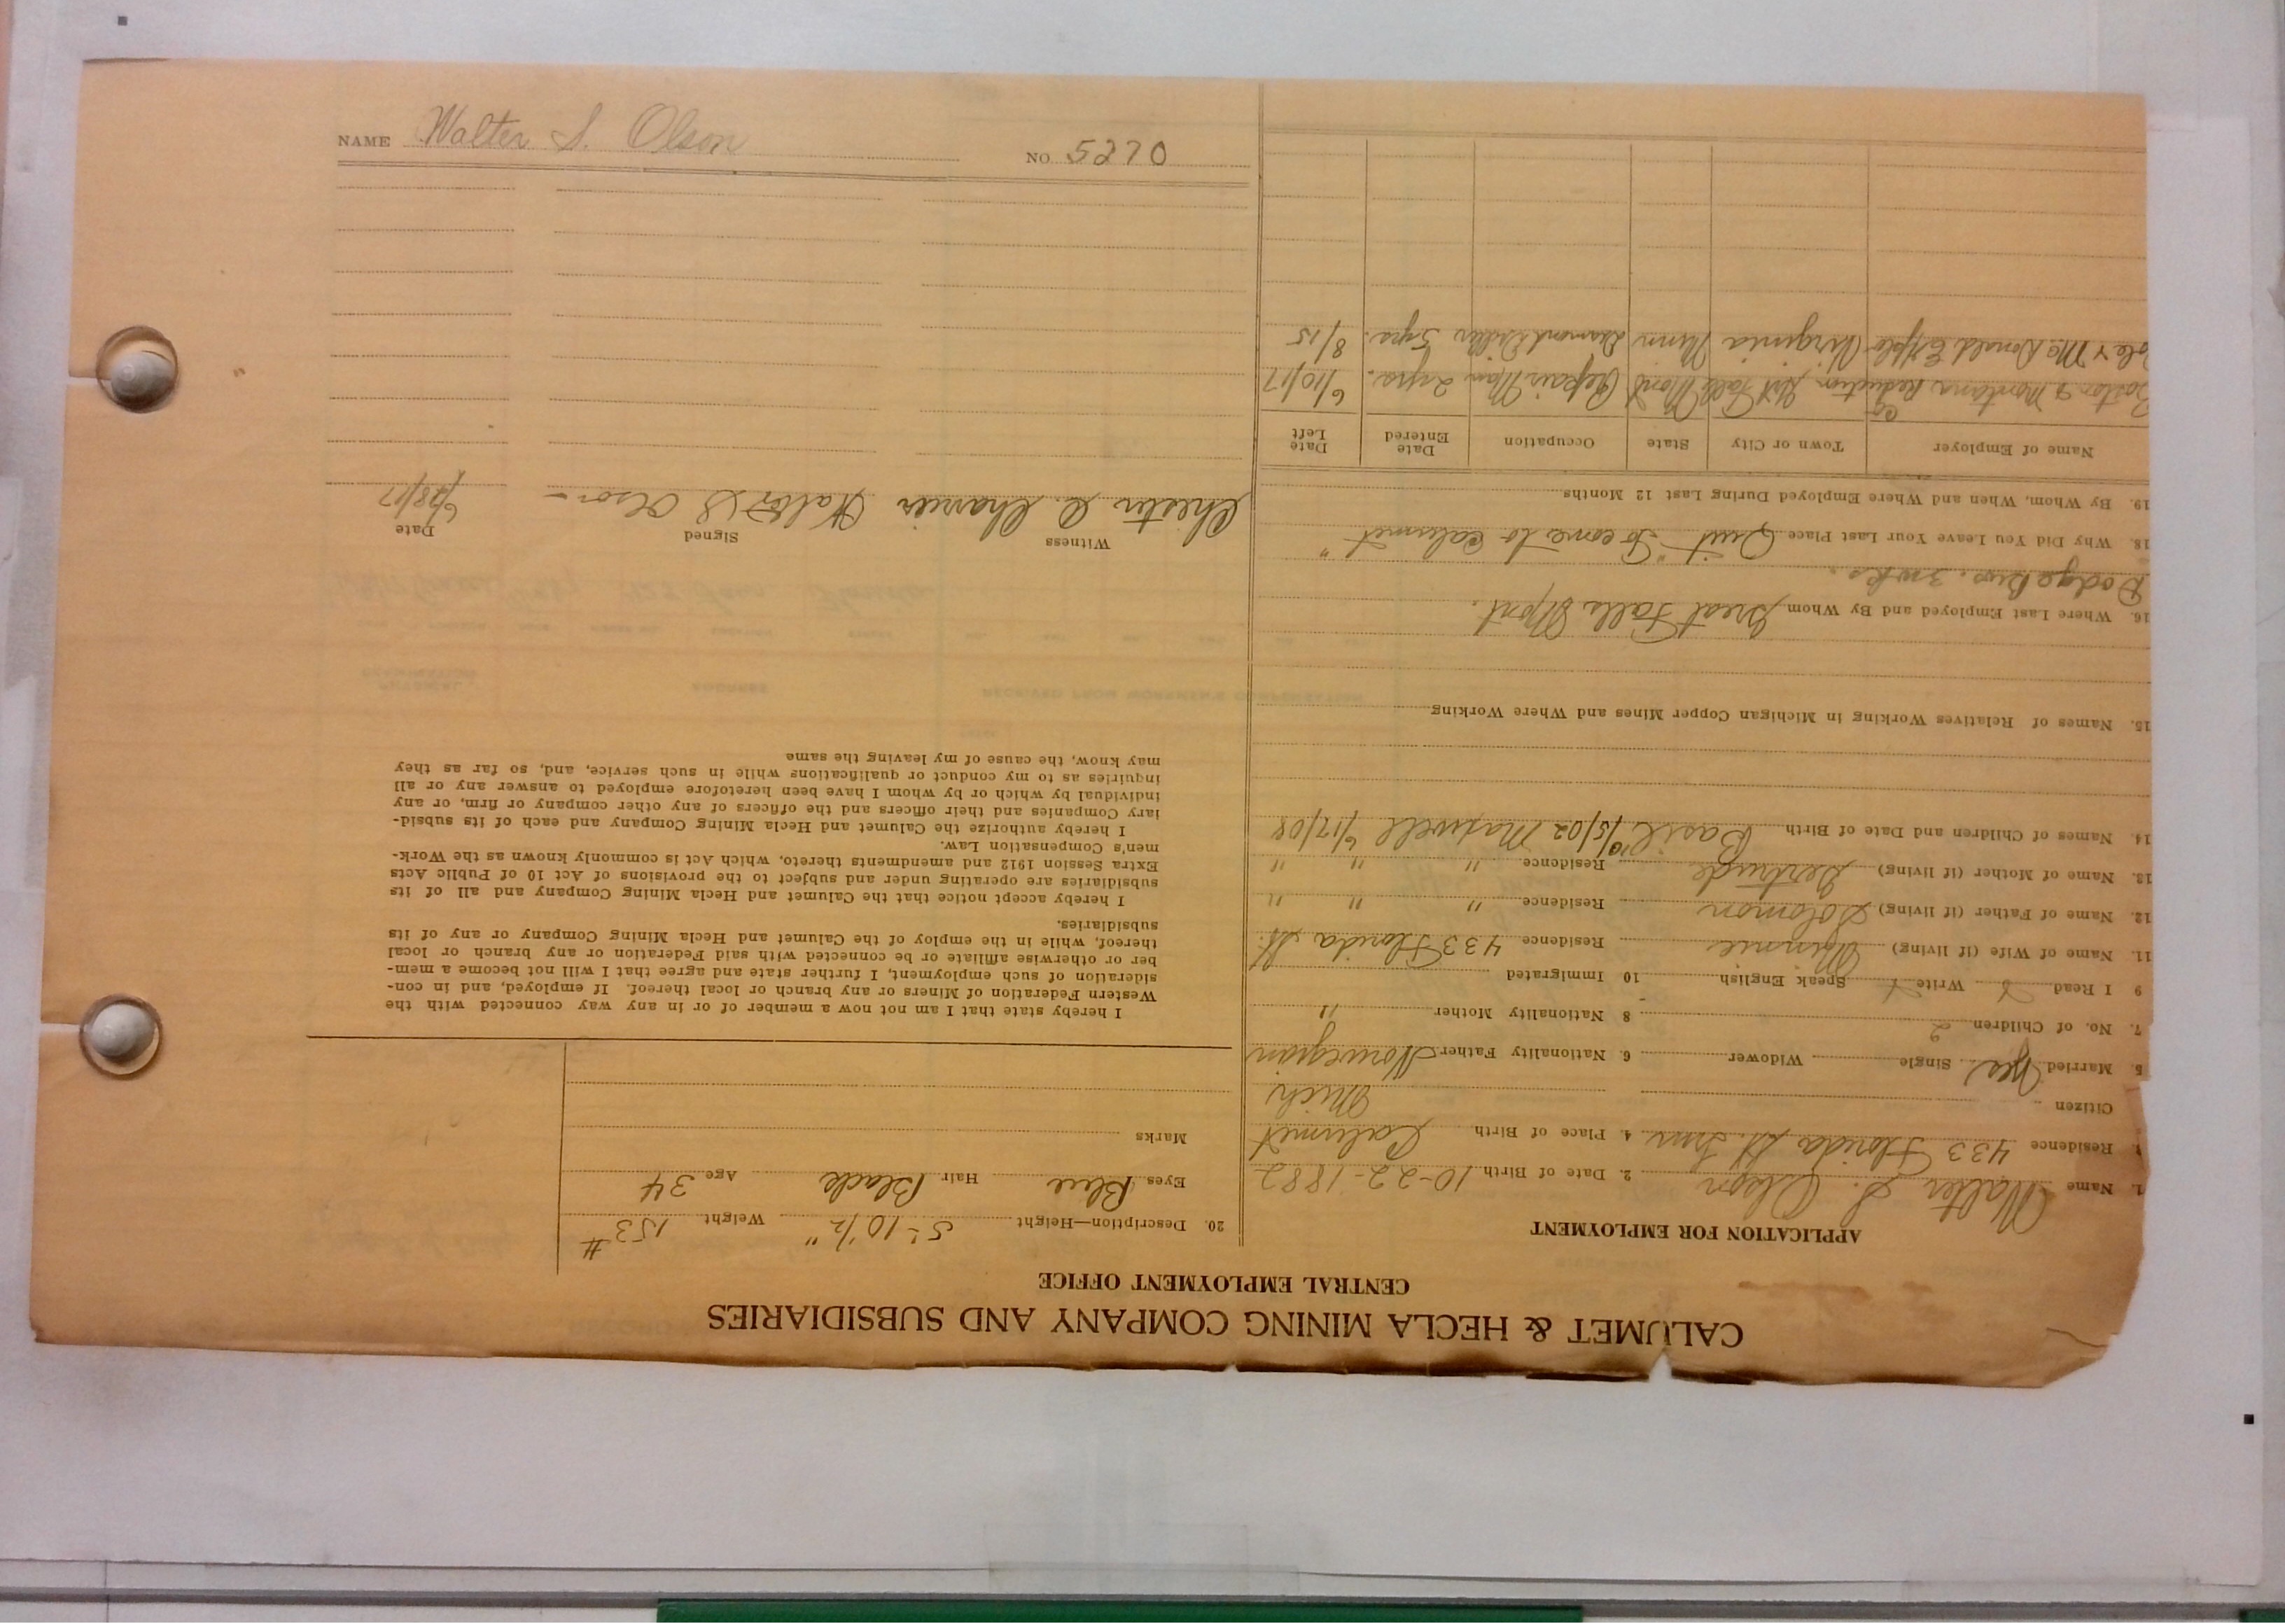 CALUMET & HECLA MINING COMPANY AND SUBSIDIARIES
CENTRAL EMPLOYMENT OFFICE
APPLICATION FOR EMPLOYMENT
1. Name Walter S. Olson 2. Date of Birth 10-22-1882
Residence 433 Florida St. 4. Place of Birth Calumet
Citizen Mich
5. Married Yes Single Widower 6. Nationality Father Norwegian
7. No. of Children 2 8 Nationality Mother "
9 I Read Write Speak English 10 Immigrated
11. Name of Wife (if living) Minnie Residence 433 Florida St.
12. Name of Father (if living) Solomon Residence " " "
13. Name of Mother (if living) Gertrude Residence " " "
14. Names of Children and Date of Birth Basil 10/5/02 Maxwell 6/17/08
15. Names of Relatives Working in Michigan Copper Mines and Where Working
16. Where Last Employed and By Whom Great Falls Mont.
Dodge Bros. 3 wks.
18. Why Did You Leave Your Last Place Quit "To come to Calumet"
19. By Whom, When and Where Employed During Last 12 Months
Name of Employer Town or City State Occupation Date Entered Date Left
Boston & Montana Reduction Co Grt Falls Mont Repair Man 2 yrs. 6/10/17
Cole & McDonald Explo Virginia Minn Diamond Driller 5 yrs. 8/15
20. Description—Height 5'-10 1/2" Weight 153#
Eyes Blue Hair Black Age 34
Marks
I hereby state that I am not now a member of or in any way connected with the
Western Federation of Miners or any branch or local thereof. If employed, and in con-
sideration of such employment, I further state and agree that I will not become a mem-
ber or otherwise affiliate or be connected with said Federation or any branch or local
thereof, while in the employ of the Calumet and Hecla Mining Company or any of its
subsidiaries.
I hereby accept notice that the Calumet and Hecla Mining Company and all of its
subsidiaries are operating under and subject to the provisions of Act 10 of Public Acts
Extra Session 1912 and amendments thereto, which Act is commonly known as the Work-
men's Compensation Law.
I hereby authorize the Calumet and Hecla Mining Company and each of its subsid-
iary Companies and their officers and the officers of any other company or firm, or any
individual by which or by whom I have been heretofore employed to answer any or all
inquiries as to my conduct or qualifications while in such service, and, so far as they
may know, the cause of my leaving the same
Witness Signed Date
Chester C. Walter S Olson 6/28/17
NAME Walter S. Olson NO. 5270